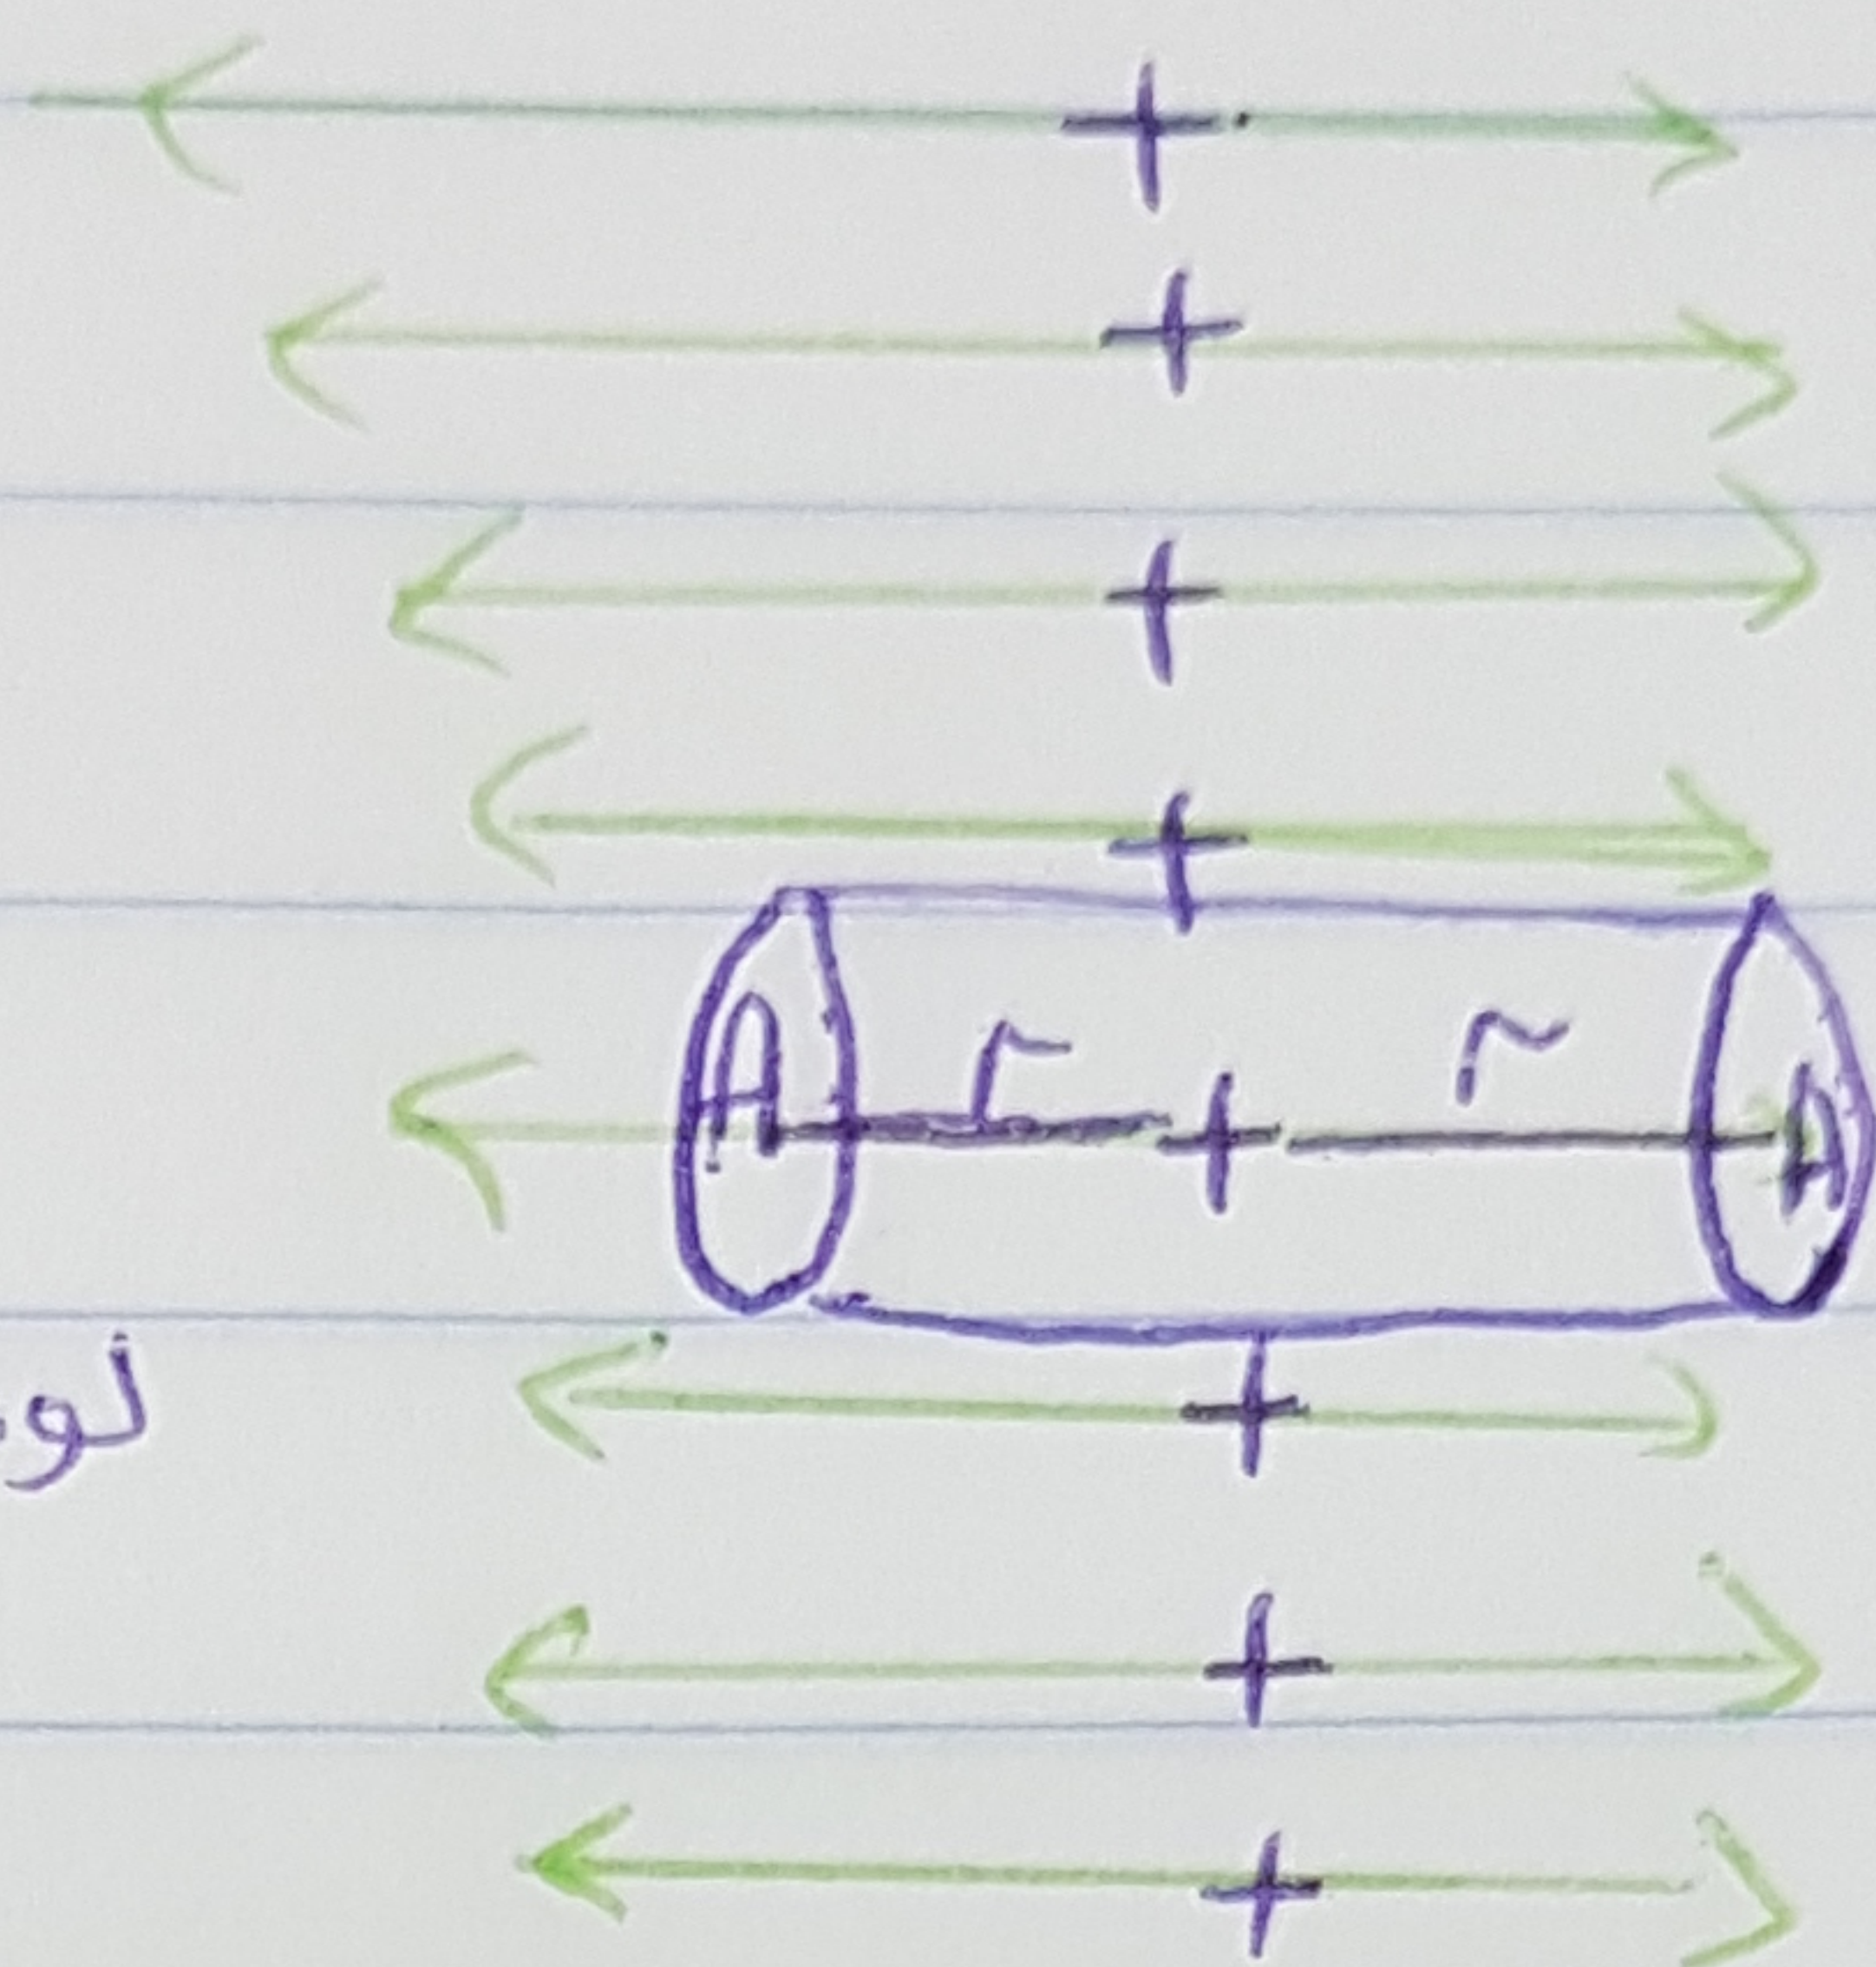 +
+
+
+
A r + r A
لو
+
+
+